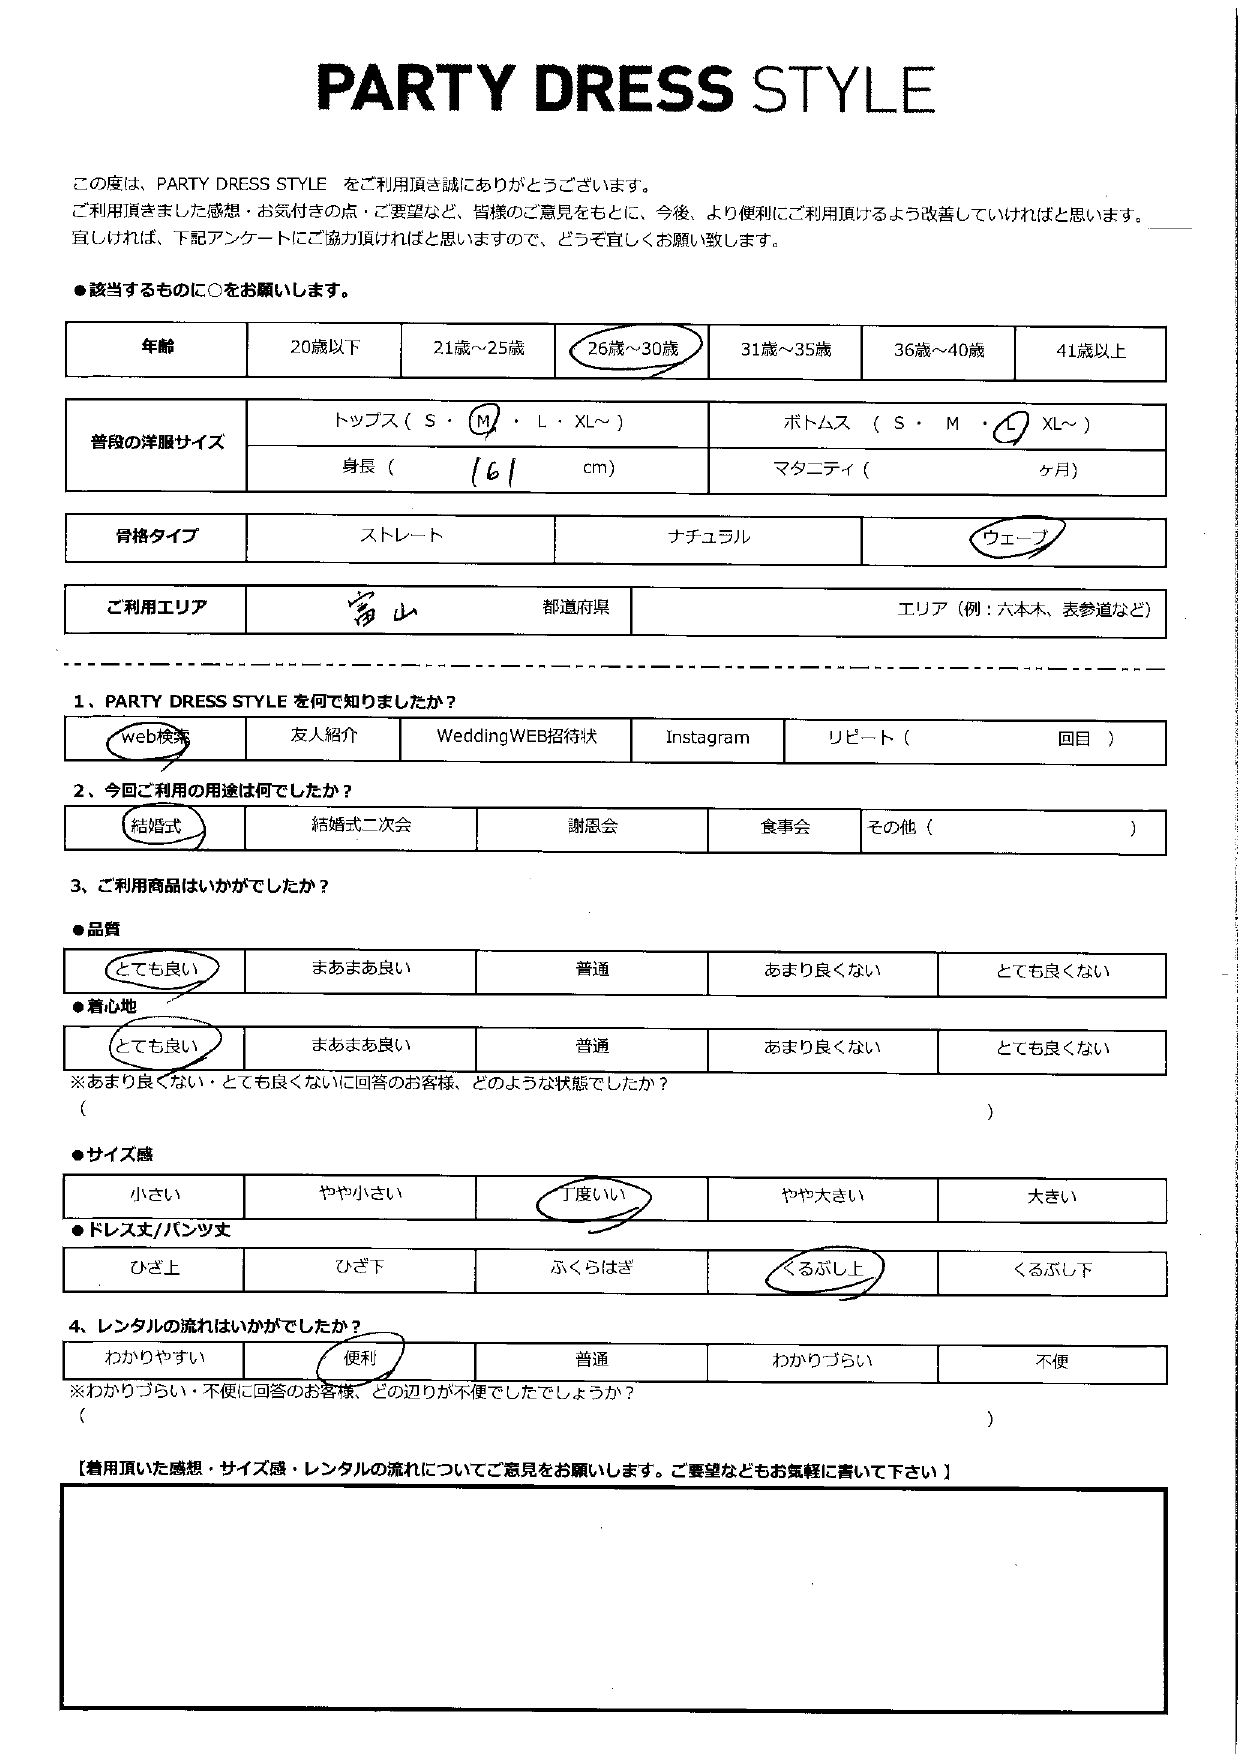 PARTY DRESS STYLE
この度は、PARTY DRESS STYLE をご利用頂き誠にありがとうございます。
ご利用頂きました感想・お気付きの点・ご要望など、皆様のご意見をもとに、今後、より便利にご利用頂けるよう改善していければと思います。
宜しければ、下記アンケートにご協力頂ければと思いますので、どうぞ宜しくお願い致します。
●該当するものに○をお願いします。
年齢 20歳以下 21歳～25歳 26歳～30歳 31歳～35歳 36歳～40歳 41歳以上
普段の洋服サイズ
トップス ( S ・ M ・ L ・ XL～ ) ボトムス ( S ・ M ・ L XL～ )
身長 ( 161 cm) マタニティ ( ヶ月)
骨格タイプ ストレート ナチュラル ウェーブ
ご利用エリア 富山 都道府県 エリア（例：六本木、表参道など）
1、PARTY DRESS STYLE を何で知りましたか？
web検索 友人紹介 WeddingWEB招待状 Instagram リピート ( 回目 )
2、今回ご利用の用途は何でしたか？
結婚式 結婚式二次会 謝恩会 食事会 その他 ( )
3、ご利用商品はいかがでしたか？
●品質
とても良い まあまあ良い 普通 あまり良くない とても良くない
●着心地
とても良い まあまあ良い 普通 あまり良くない とても良くない
※あまり良くない・とても良くないに回答のお客様、どのような状態でしたか？
( )
●サイズ感
小さい やや小さい 丁度いい やや大きい 大きい
●ドレス丈/パンツ丈
ひざ上 ひざ下 ふくらはぎ くるぶし上 くるぶし下
4、レンタルの流れはいかがでしたか？
わかりやすい 便利 普通 わかりづらい 不便
※わかりづらい・不便に回答のお客様、どの辺りが不便でしたでしょうか？
( )
【着用頂いた感想・サイズ感・レンタルの流れについてご意見をお願いします。ご要望などもお気軽に書いて下さい 】